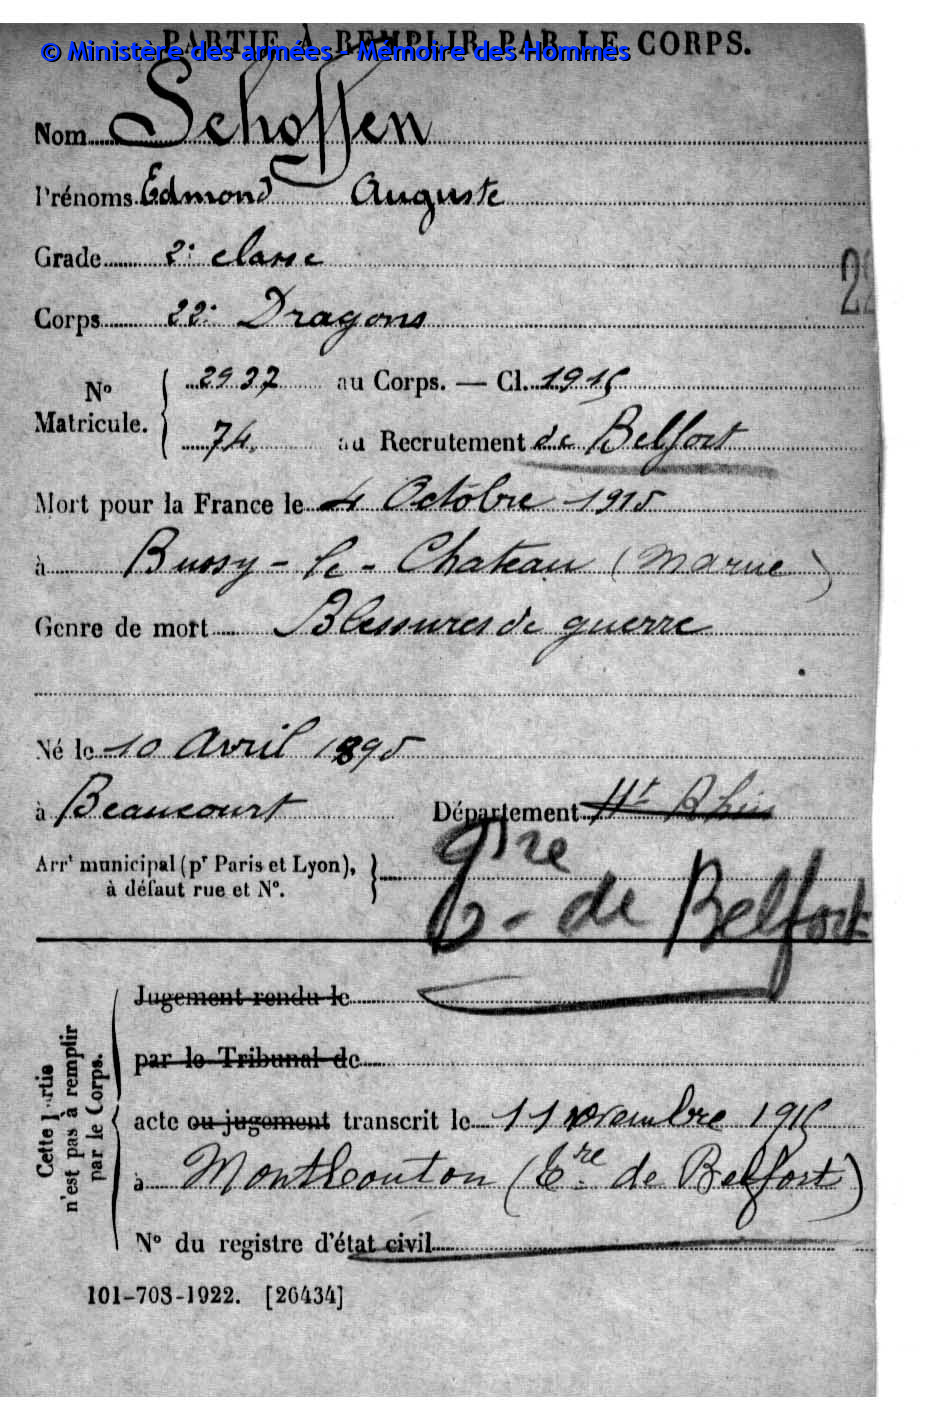 PARTIE À REMPLIR PAR LE CORPS.
© Ministère des armées - Mémoire des Hommes
Nom Schoffen
Prénoms Edmond Auguste
Grade 2e classe
22
Corps 22e Dragons
No Matricule. { 2937 au Corps. — Cl. 1915
74. au Recrutement de Belfort
Mort pour la France le 4 Octobre 1915
à Bussy-le-Chateau (Marne)
Genre de mort Blessures de guerre
Né le 10 Avril 1895
à Beaucourt Département Ht Rhin
Arrt municipal (pr Paris et Lyon), à défaut rue et No. } Tre de Belfort
Cette partie n'est pas à remplir par le Corps.
Jugement rendu le
par le Tribunal de
acte ou jugement transcrit le 11 novembre 1915
à Montbouton (Tre de Belfort)
No du registre d'état civil
101-708-1922. [26434]